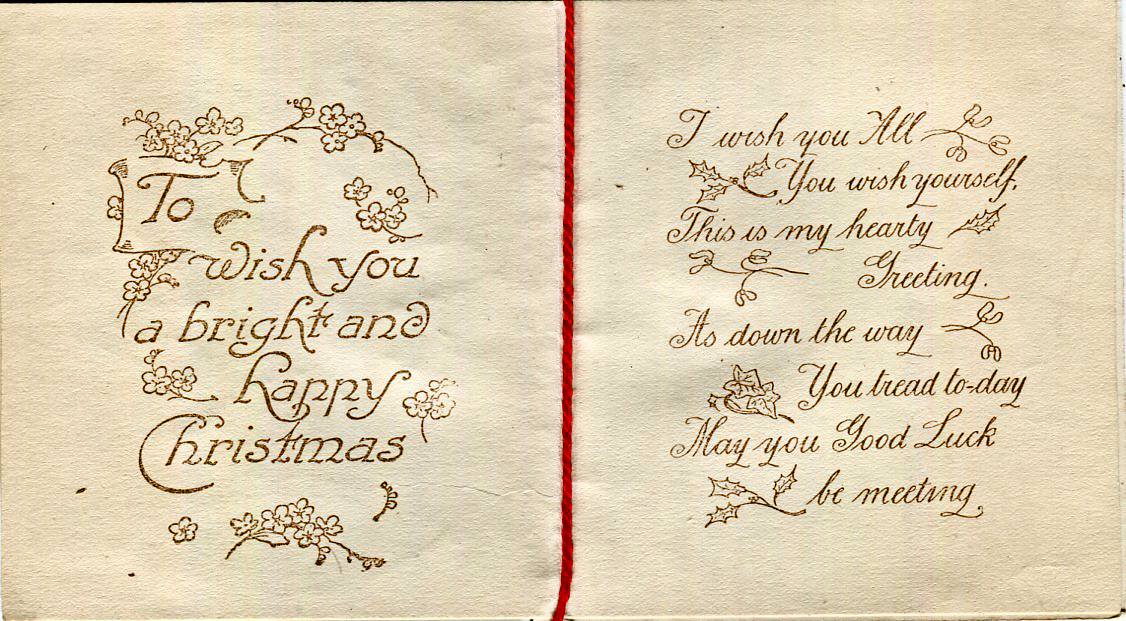 To
wish you
a bright and
happy
Christmas
I wish you All
You wish yourself,
This is my hearty
Greeting.
As down the way
You tread to-day
May you Good Luck
be meeting